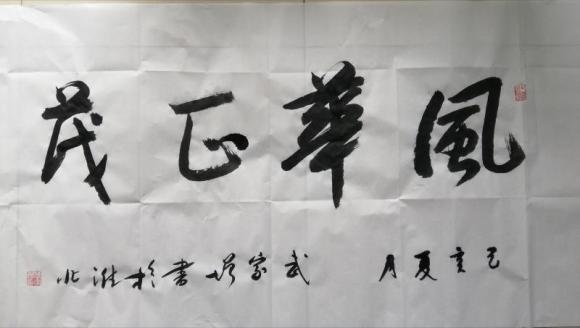 風華正茂
己亥夏月 武家坡書於淮北